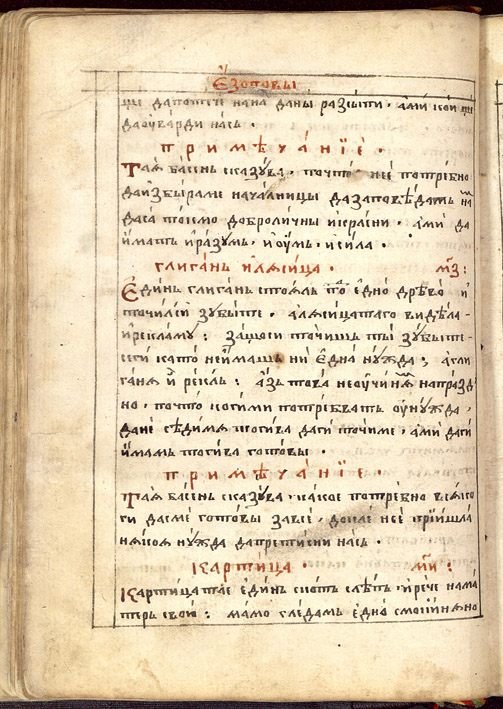 Є҆зоповы
цы да потече на на даны разсыпи, ами кои щы
да оу҆варди насъ.
ПРИМѢЧАНЇЕ.
Таѧ басень сказꙋва, почто нее потребно
да и҆збыраме началницы да заповѣдатъ на
да са токмо доброличны и красни. ами да
и҆матъ и҆ разꙋмъ, и҆ оу҆мъ, и сила.
Глиганъ и лѧсица. мз:
Е҆динъ глиганъ стоялъ под едно дрѣво и҆
точилъ си зꙋбыте. а лѧсицата го видѣла
и҆ рекла мꙋ: защо си точишъ ты зꙋбыте
сеги като не и҆машъ ни една нꙋжда; а гли
ганѧ и҆ рекълъ: азъ това не оу҆чинѧ напразд
но, почто когими потребватъ оу҆ нꙋжда,
да не сѣдимъ тогива да ги точиме, ами да ги
и҆мамъ тогива готовы.
ПРИМѢЧАНЇЕ.
Таѧ басень сказꙋва, како е потребно всѧко
ги да сме готовы завсе, докле нее прїишла
нѧкоѧ нꙋжда да претисни насъ.
Картица. ми:
Картицата е единъ скотъ слѣпъ, и҆ рече на ма
терь свою: мамо гледамъ едно смокинѧно